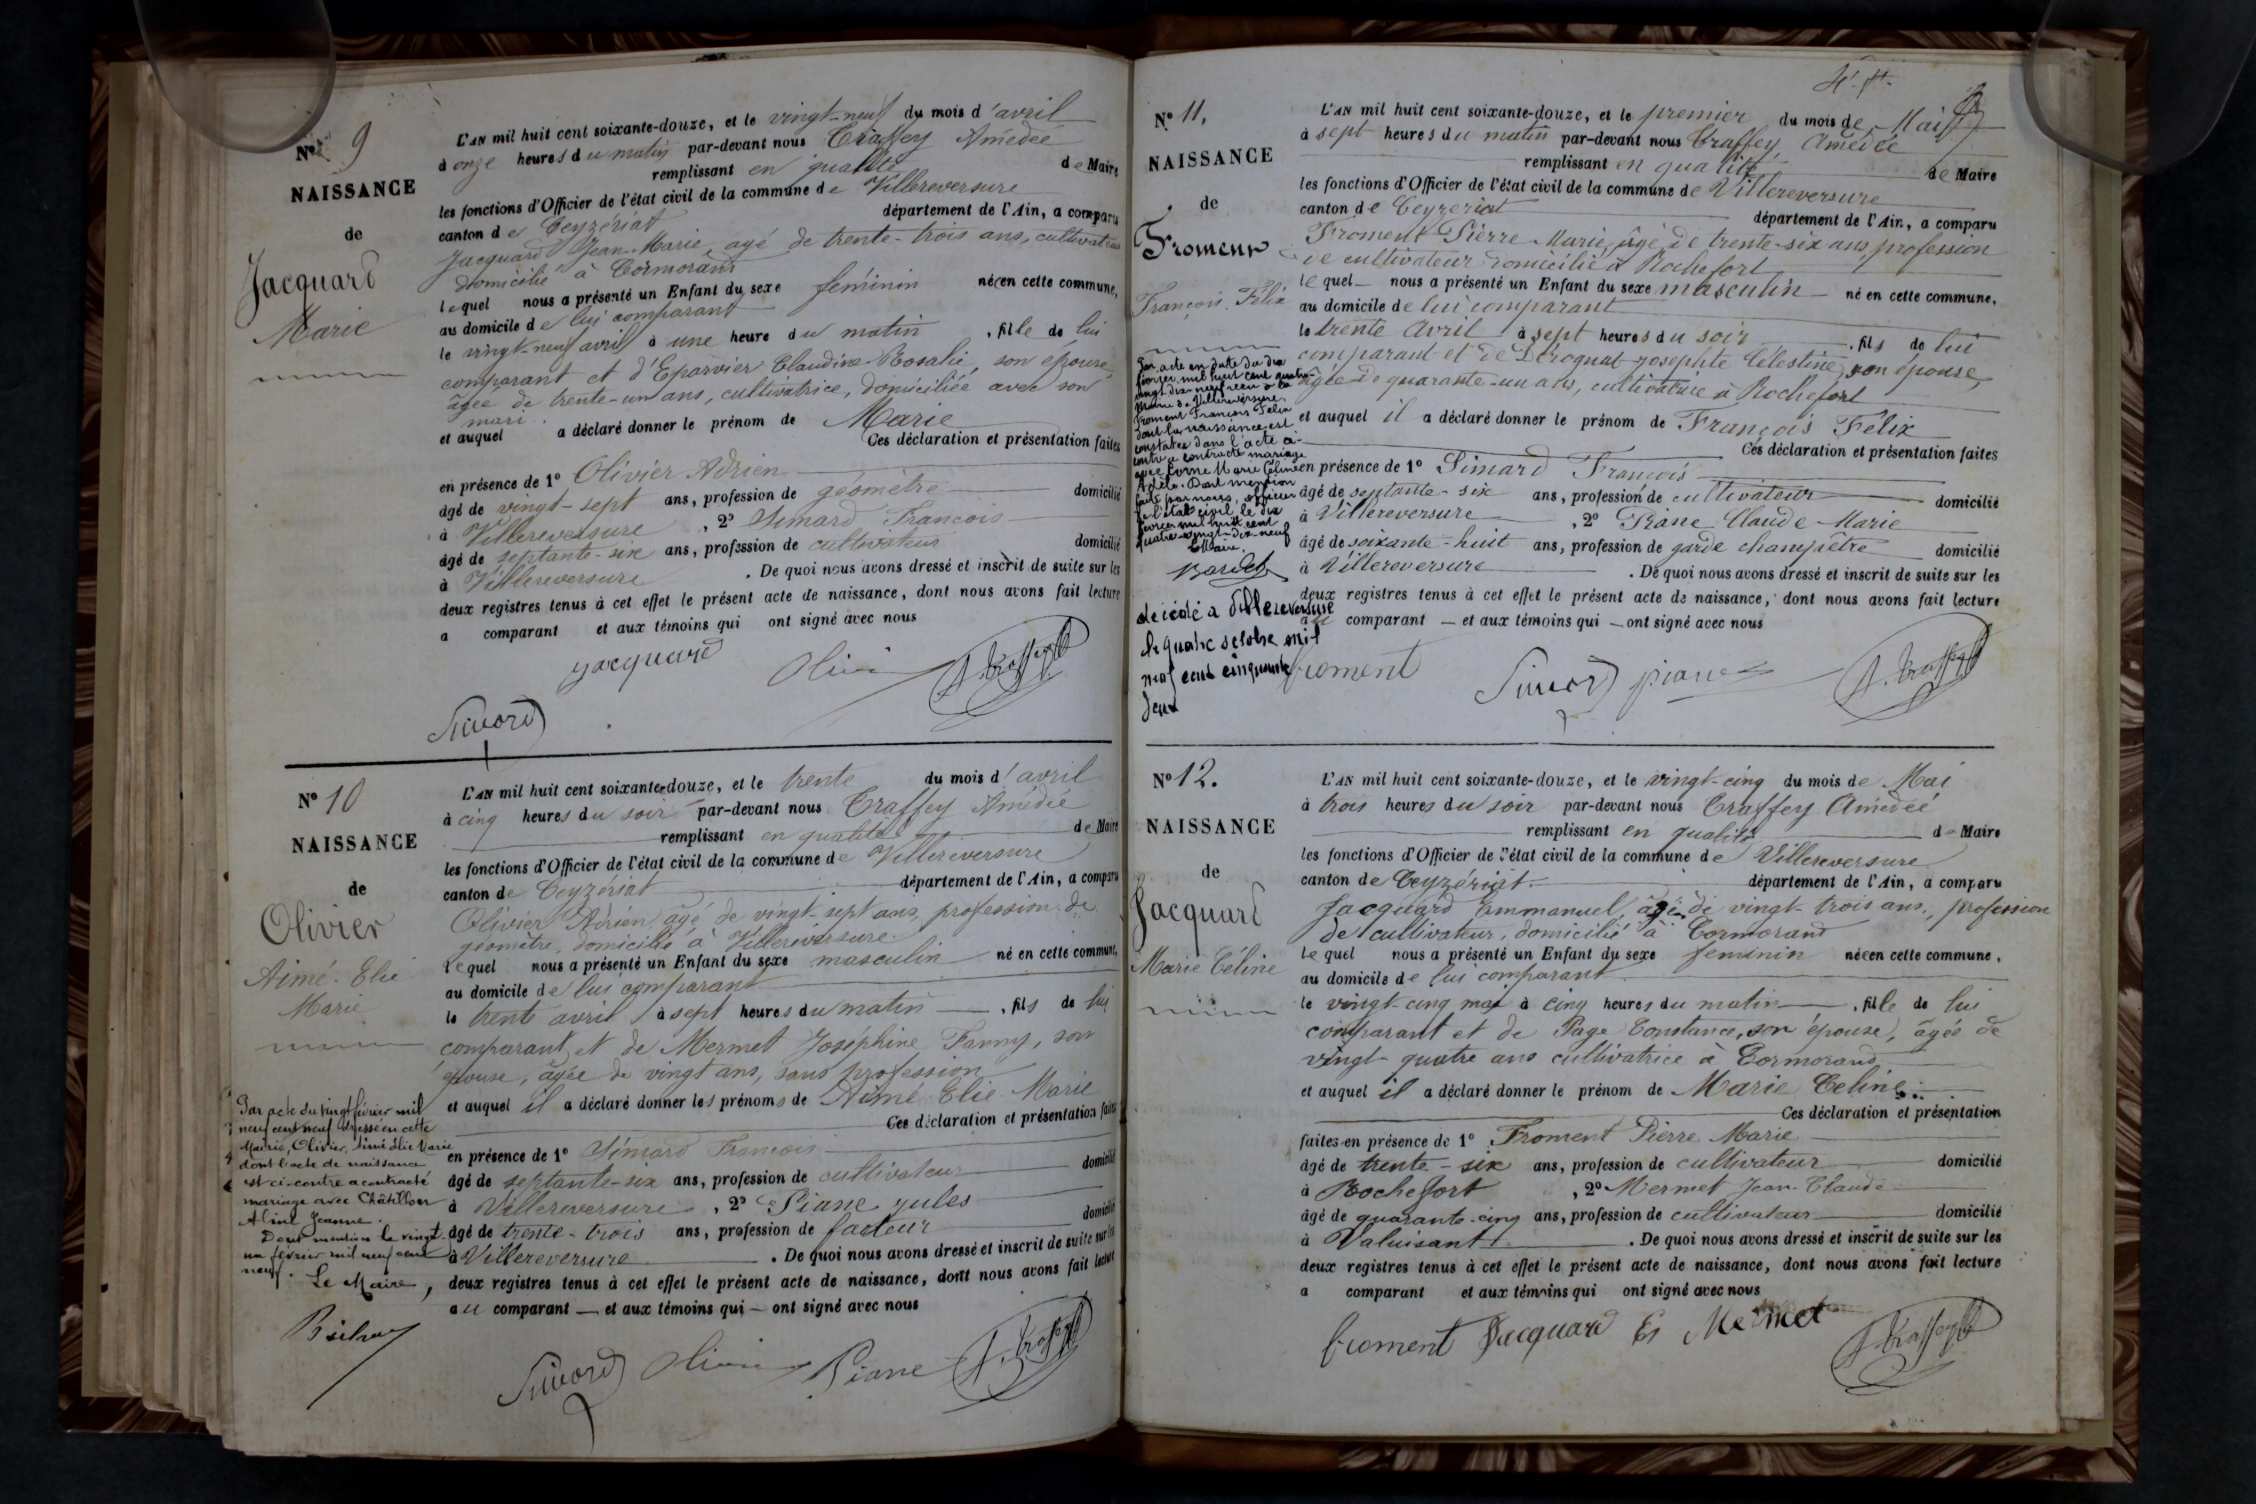 Nº 9
NAISSANCE
de
Jacquard
Marie
L'AN mil huit cent soixante-douze, et le vingt-neuf du mois d'avril
à onze heures du matin par-devant nous Traffey Amédée
remplissant en qualité de Maire
les fonctions d'Officier de l'état civil de la commune de Villereversure
canton de Ceyzériat département de l'Ain, a comparu
Jacquard Jean-Marie, agé de trente-trois ans, cultivateur
domicilié à Cormorand
lequel nous a présenté un Enfant du sexe féminin née en cette commune,
au domicile de lui comparant
le vingt-neuf avril à une heure du matin, fille de lui
comparant et d'Eparvier Claudine-Rosalie, son épouse,
âgée de trente-un ans, cultivatrice, domiciliée avec son
mari.
et auquel a déclaré donner le prénom de Marie
Ces déclaration et présentation faites
en présence de 1º Olivier Adrien
âgé de vingt-sept ans, profession de géomètre domicilié
à Villereversure, 2º Simard François
âgé de septante-six ans, profession de cultivateur domicilié
à Villereversure. De quoi nous avons dressé et inscrit de suite sur les
deux registres tenus à cet effet le présent acte de naissance, dont nous avons fait lecture
a comparant et aux témoins qui ont signé avec nous
Jacquard Olivier A. Traffey
Simard
Nº 10
NAISSANCE
de
Olivier
Aimé-Elie
Marie
L'AN mil huit cent soixante-douze, et le trente du mois d'avril
à cinq heures du soir par-devant nous Traffey Amédée
remplissant en qualité de Maire
les fonctions d'Officier de l'état civil de la commune de Villereversure
canton de Ceyzériat département de l'Ain, a comparu
Olivier Adrien, âgé de vingt-sept ans, profession de
géomètre, domicilié à Villereversure
lequel nous a présenté un Enfant du sexe masculin né en cette commune,
au domicile de lui comparant
le trente avril à sept heures du matin, fils de lui
comparant et de Mermet Joséphine Fanny, son
épouse, âgée de vingt ans, sans profession
et auquel il a déclaré donner les prénoms de Aimé Elie Marie
Ces déclaration et présentation faites
en présence de 1º Simard François
âgé de septante-six ans, profession de cultivateur domicilié
à Villereversure, 2º Piane Jules
âgé de trente-trois ans, profession de facteur domicilié
à Villereversure. De quoi nous avons dressé et inscrit de suite sur les
deux registres tenus à cet effet le présent acte de naissance, dont nous avons fait lecture
au comparant et aux témoins qui ont signé avec nous
Par acte du vingt février mil
neuf cent neuf dressé en cette
Mairie, Olivier, Aimé Elie Marie
dont l'acte de naissance
est ci-contre a contracté
mariage avec Châtillon
Aline Jeanne.
Dont mention le vingt-
un février mil neuf cent
neuf. Le Maire,
Simard Olivier Piane A. Traffey
Nº 11.
NAISSANCE
de
Froment
François Félix
L'AN mil huit cent soixante-douze, et le premier du mois de Mai
à sept heures du matin par-devant nous Traffey Amédée
remplissant en qualité de Maire
les fonctions d'Officier de l'état civil de la commune de Villereversure
canton de Ceyzeriat département de l'Ain, a comparu
Froment Pierre-Marie, âgé de trente-six ans, profession
de cultivateur domicilié à Rochefort
lequel nous a présenté un Enfant du sexe masculin né en cette commune,
au domicile de lui comparant
le trente avril à sept heures du soir, fils de lui
comparant et de Josephte Célestine, son épouse,
âgée de quarante-un ans, cultivatrice à Rochefort
et auquel il a déclaré donner le prénom de François Félix
Ces déclaration et présentation faites
en présence de 1º Simard François
âgé de septante-six ans, profession de cultivateur domicilié
à Villereversure, 2º Piane Claude-Marie
âgé de soixante-huit ans, profession de garde champêtre domicilié
à Villereversure. De quoi nous avons dressé et inscrit de suite sur les
deux registres tenus à cet effet le présent acte de naissance, dont nous avons fait lecture
au comparant et aux témoins qui ont signé avec nous
Par acte en date du dix
février mil huit cent quatre-
vingt dix-neuf reçu à la
Mairie de Villereversure
Froment François Felix
dont la naissance est
constatée dans l'acte ci-
contre a contracté mariage
avec Marie Céline
Adèle. Dont mention
faite par nous, officier
de l'état civil le dix
février mil huit cent
quatre-vingt-dix-neuf
Le Maire.
décédé à Villereversure
le quatre octobre mil
neuf cent cinquante
deux
Froment Simard Piane A. Traffey
Nº 12.
NAISSANCE
de
Jacquard
Marie Céline
L'AN mil huit cent soixante-douze, et le vingt-cinq du mois de Mai
à trois heures du soir par-devant nous Traffey Amédée
remplissant en qualité de Maire
les fonctions d'Officier de l'état civil de la commune de Villereversure
canton de Ceyzériat département de l'Ain, a comparu
Jacquard Emmanuel, âgé de vingt-trois ans, profession
de cultivateur, domicilié à Cormorand
lequel nous a présenté un Enfant du sexe feminin née en cette commune,
au domicile de lui comparant
le vingt-cinq mai à cinq heures du matin, fille de lui
comparant et de Page Constance, son épouse, âgée de
vingt-quatre ans cultivatrice à Cormorand
et auquel il a déclaré donner le prénom de Marie Celine
Ces déclaration et présentation
faites en présence de 1º Froment Pierre Marie
âgé de trente-six ans, profession de cultivateur domicilié
à Rochefort, 2º Mermet Jean-Claude
âgé de quarante-cinq ans, profession de cultivateur domicilié
à Valuisant. De quoi nous avons dressé et inscrit de suite sur les
deux registres tenus à cet effet le présent acte de naissance, dont nous avons fait lecture
a comparant et aux témoins qui ont signé avec nous
froment Jacquard Es Mermet A. Traffey